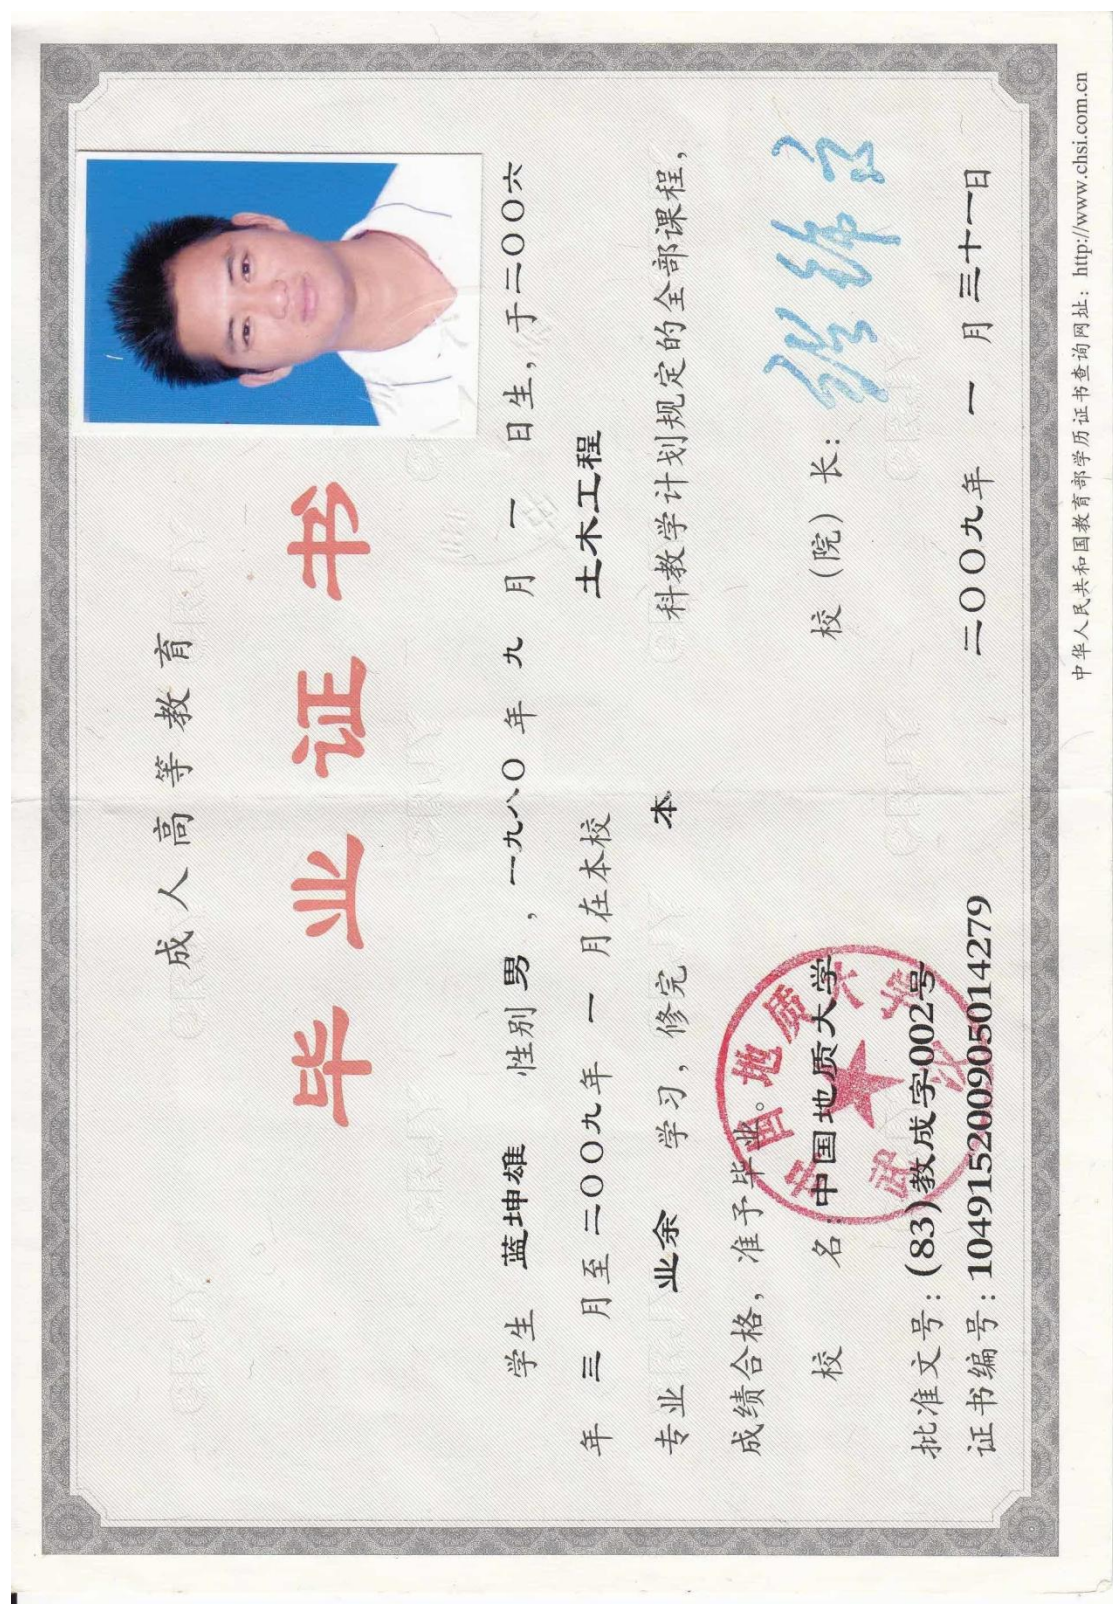 成人高等教育
毕业证书
学生 蓝坤雄 性别 男 , 一九八〇 年 九 月 一 日生, 于二〇〇六
年 三 月至二〇〇九年 一 月在本校 土木工程
专业 业余 学习, 修完 本 科教学计划规定的全部课程,
成绩合格, 准予毕业。
校 名: 中国地质大学 校 (院) 长:
批准文号: (83)教成字002号
证书编号: 104915200905014279 二〇〇九年 一 月 三十一日
中华人民共和国教育部学历证书查询网址: http://www.chsi.com.cn
中国地质大学
武汉
CRJY